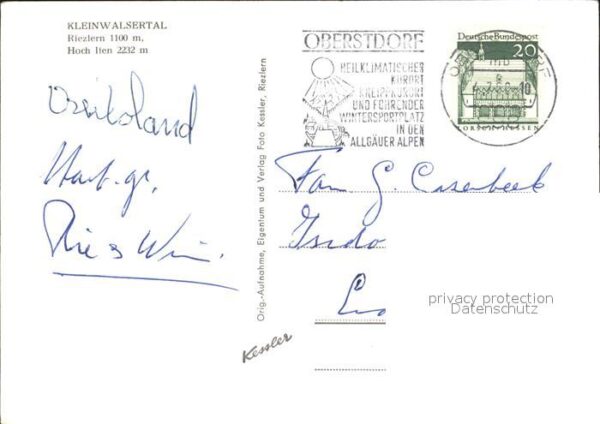 KLEINWALSERTAL
Riezlern 1100 m,
Hoch Iten 2232 m
OBERSTDORF
HEILKLIMATISCHER
KURORT
KNEIPPKURORT
UND FÜHRENDER
WINTERSPORTPLATZ
IN DEN
ALLGÄUER ALPEN
Deutsche Bundespost
20
LORSCH·HESSEN
Hart. gr.
Fam G. Casenbeek
privacy protection
Datenschutz
Orig.-Aufnahme, Eigentum und Verlag Foto Kessler, Riezlern
Kessler